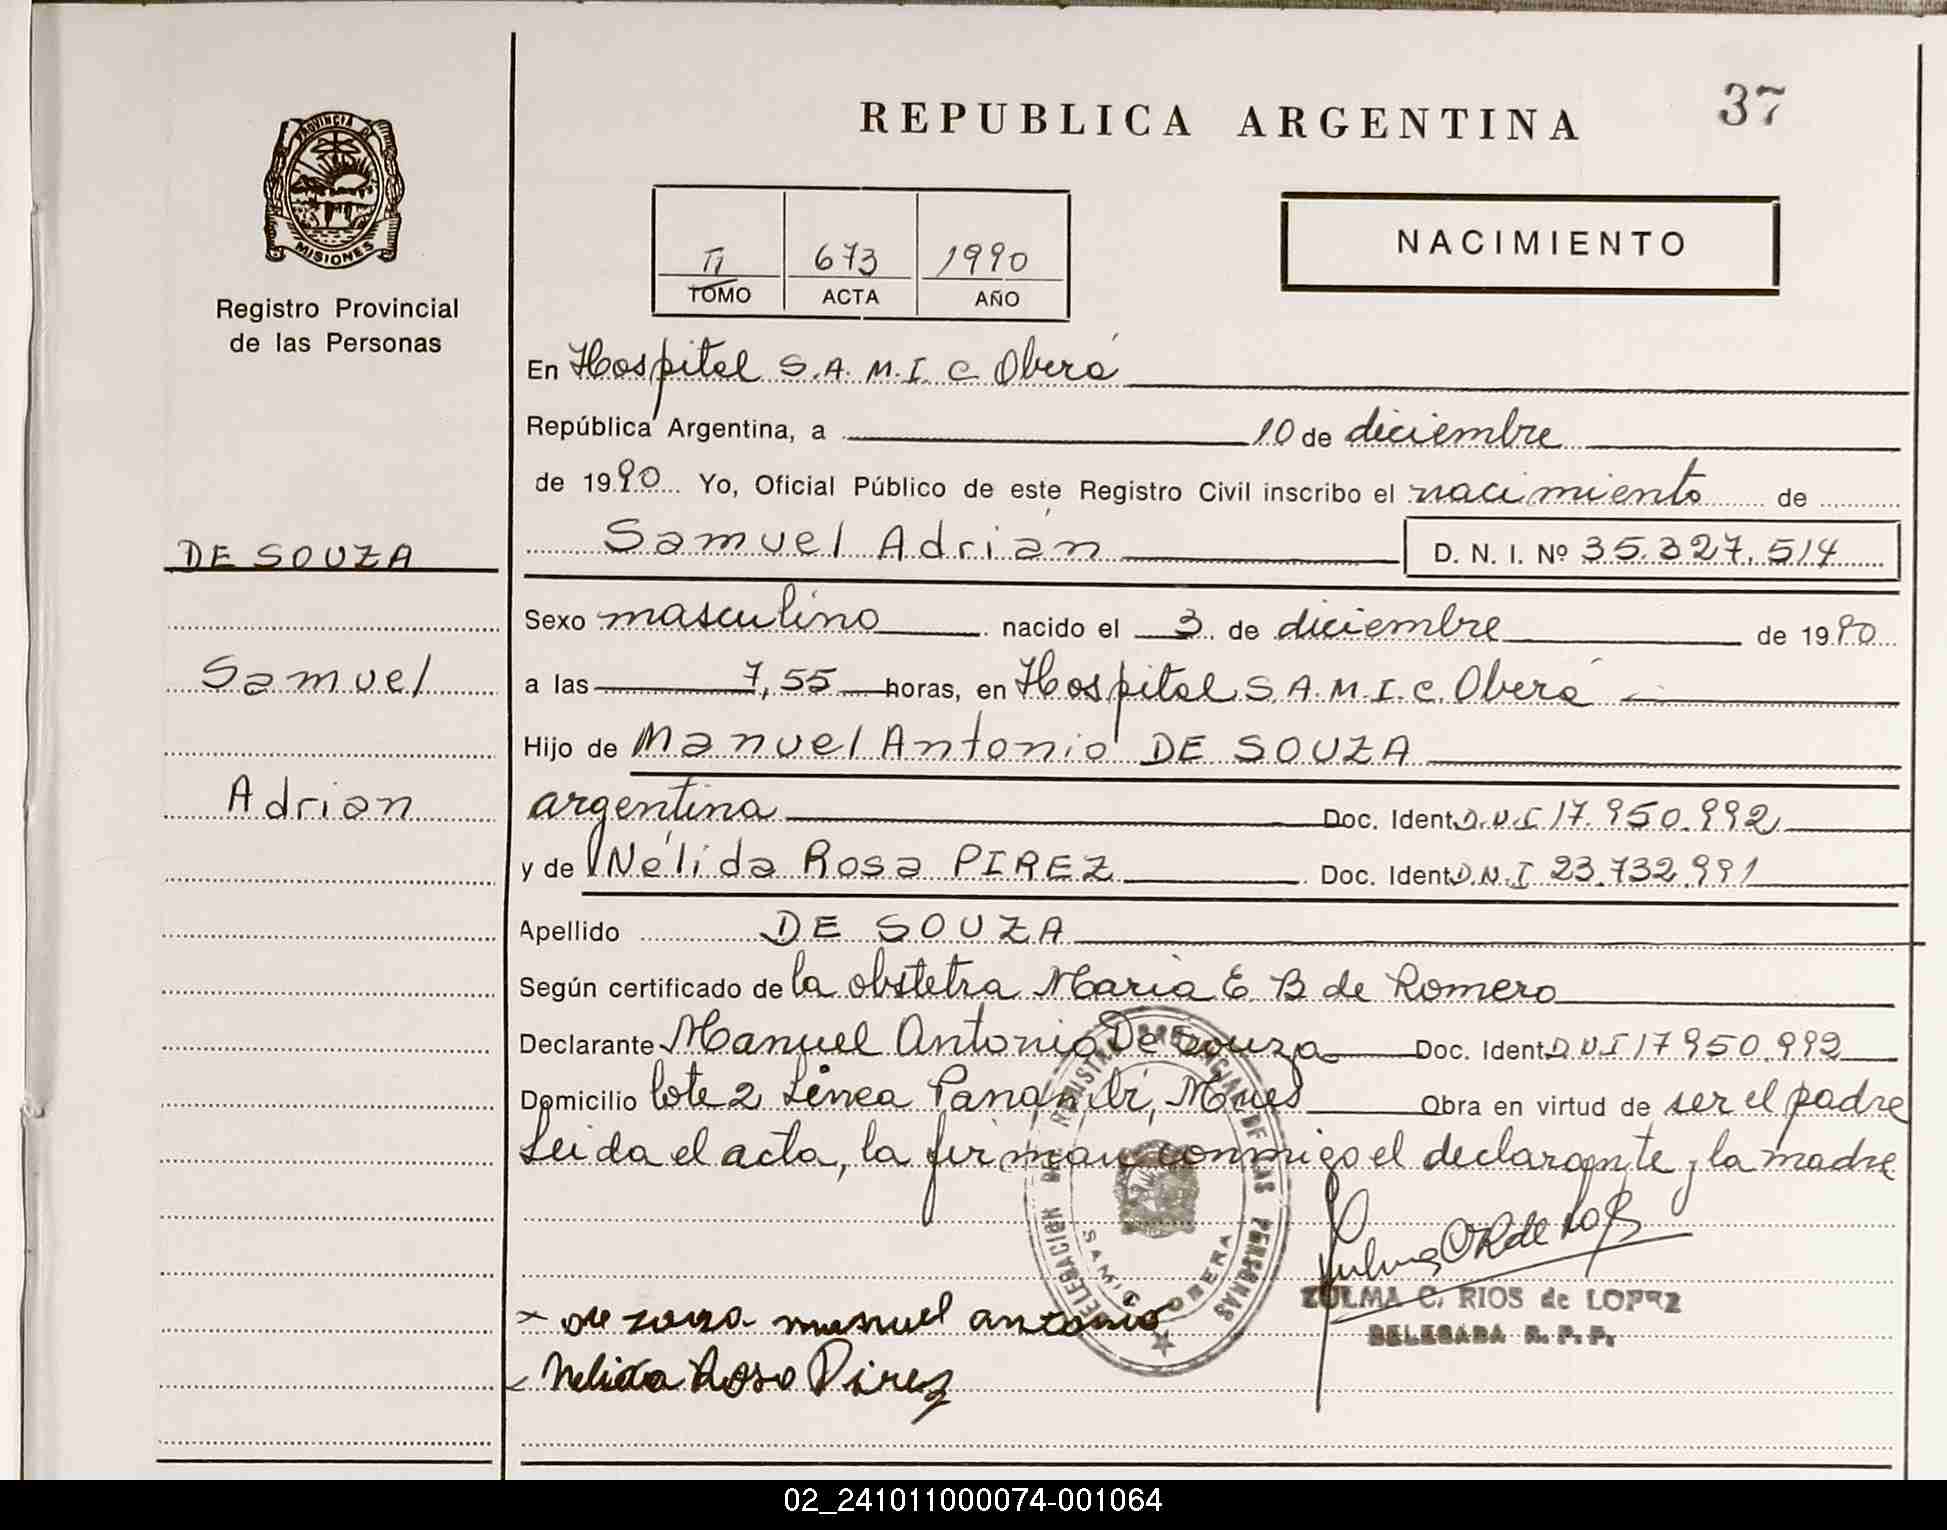 37
REPUBLICA ARGENTINA
PROVINCIA DE
MISIONES
Registro Provincial
de las Personas
NACIMIENTO
TI 673 1990
TOMO ACTA AÑO
En Hospital S.A.M.I.C Oberá
República Argentina, a 10 de diciembre
de 1990 Yo, Oficial Público de este Registro Civil inscribo el nacimiento de
DE SOUZA
Samuel Adrián D. N. I. Nº 35.327.514
Sexo masculino nacido el 3 de diciembre de 1990
Samuel
a las 7,55 horas, en Hospital S.A.M.I.C. Oberá
Hijo de Manuel Antonio DE SOUZA
Adrian
argentina Doc. Ident. D.N.I 17.950.992
y de Nélida Rosa PIREZ Doc. Ident. D.N.I 23.732.991
Apellido DE SOUZA
Según certificado de la obstetra Maria E B de Romero
Declarante Manuel Antonio De Souza Doc. Ident. D.N.I 17950.992
Domicilio lote 2 Linea Panambi, Mnes Obra en virtud de ser el padre
Leida el acta, la firman conmigo el declarante y la madre
DELEGACION DEL REGISTRO PROVINCIAL DE LAS PERSONAS
SAMIC OBERA
ZULMA C. RIOS de LOPEZ
DELEGADA R. P. P.
de zouza manuel antonio
Nelida Rosa Pirez
02_241011000074-001064